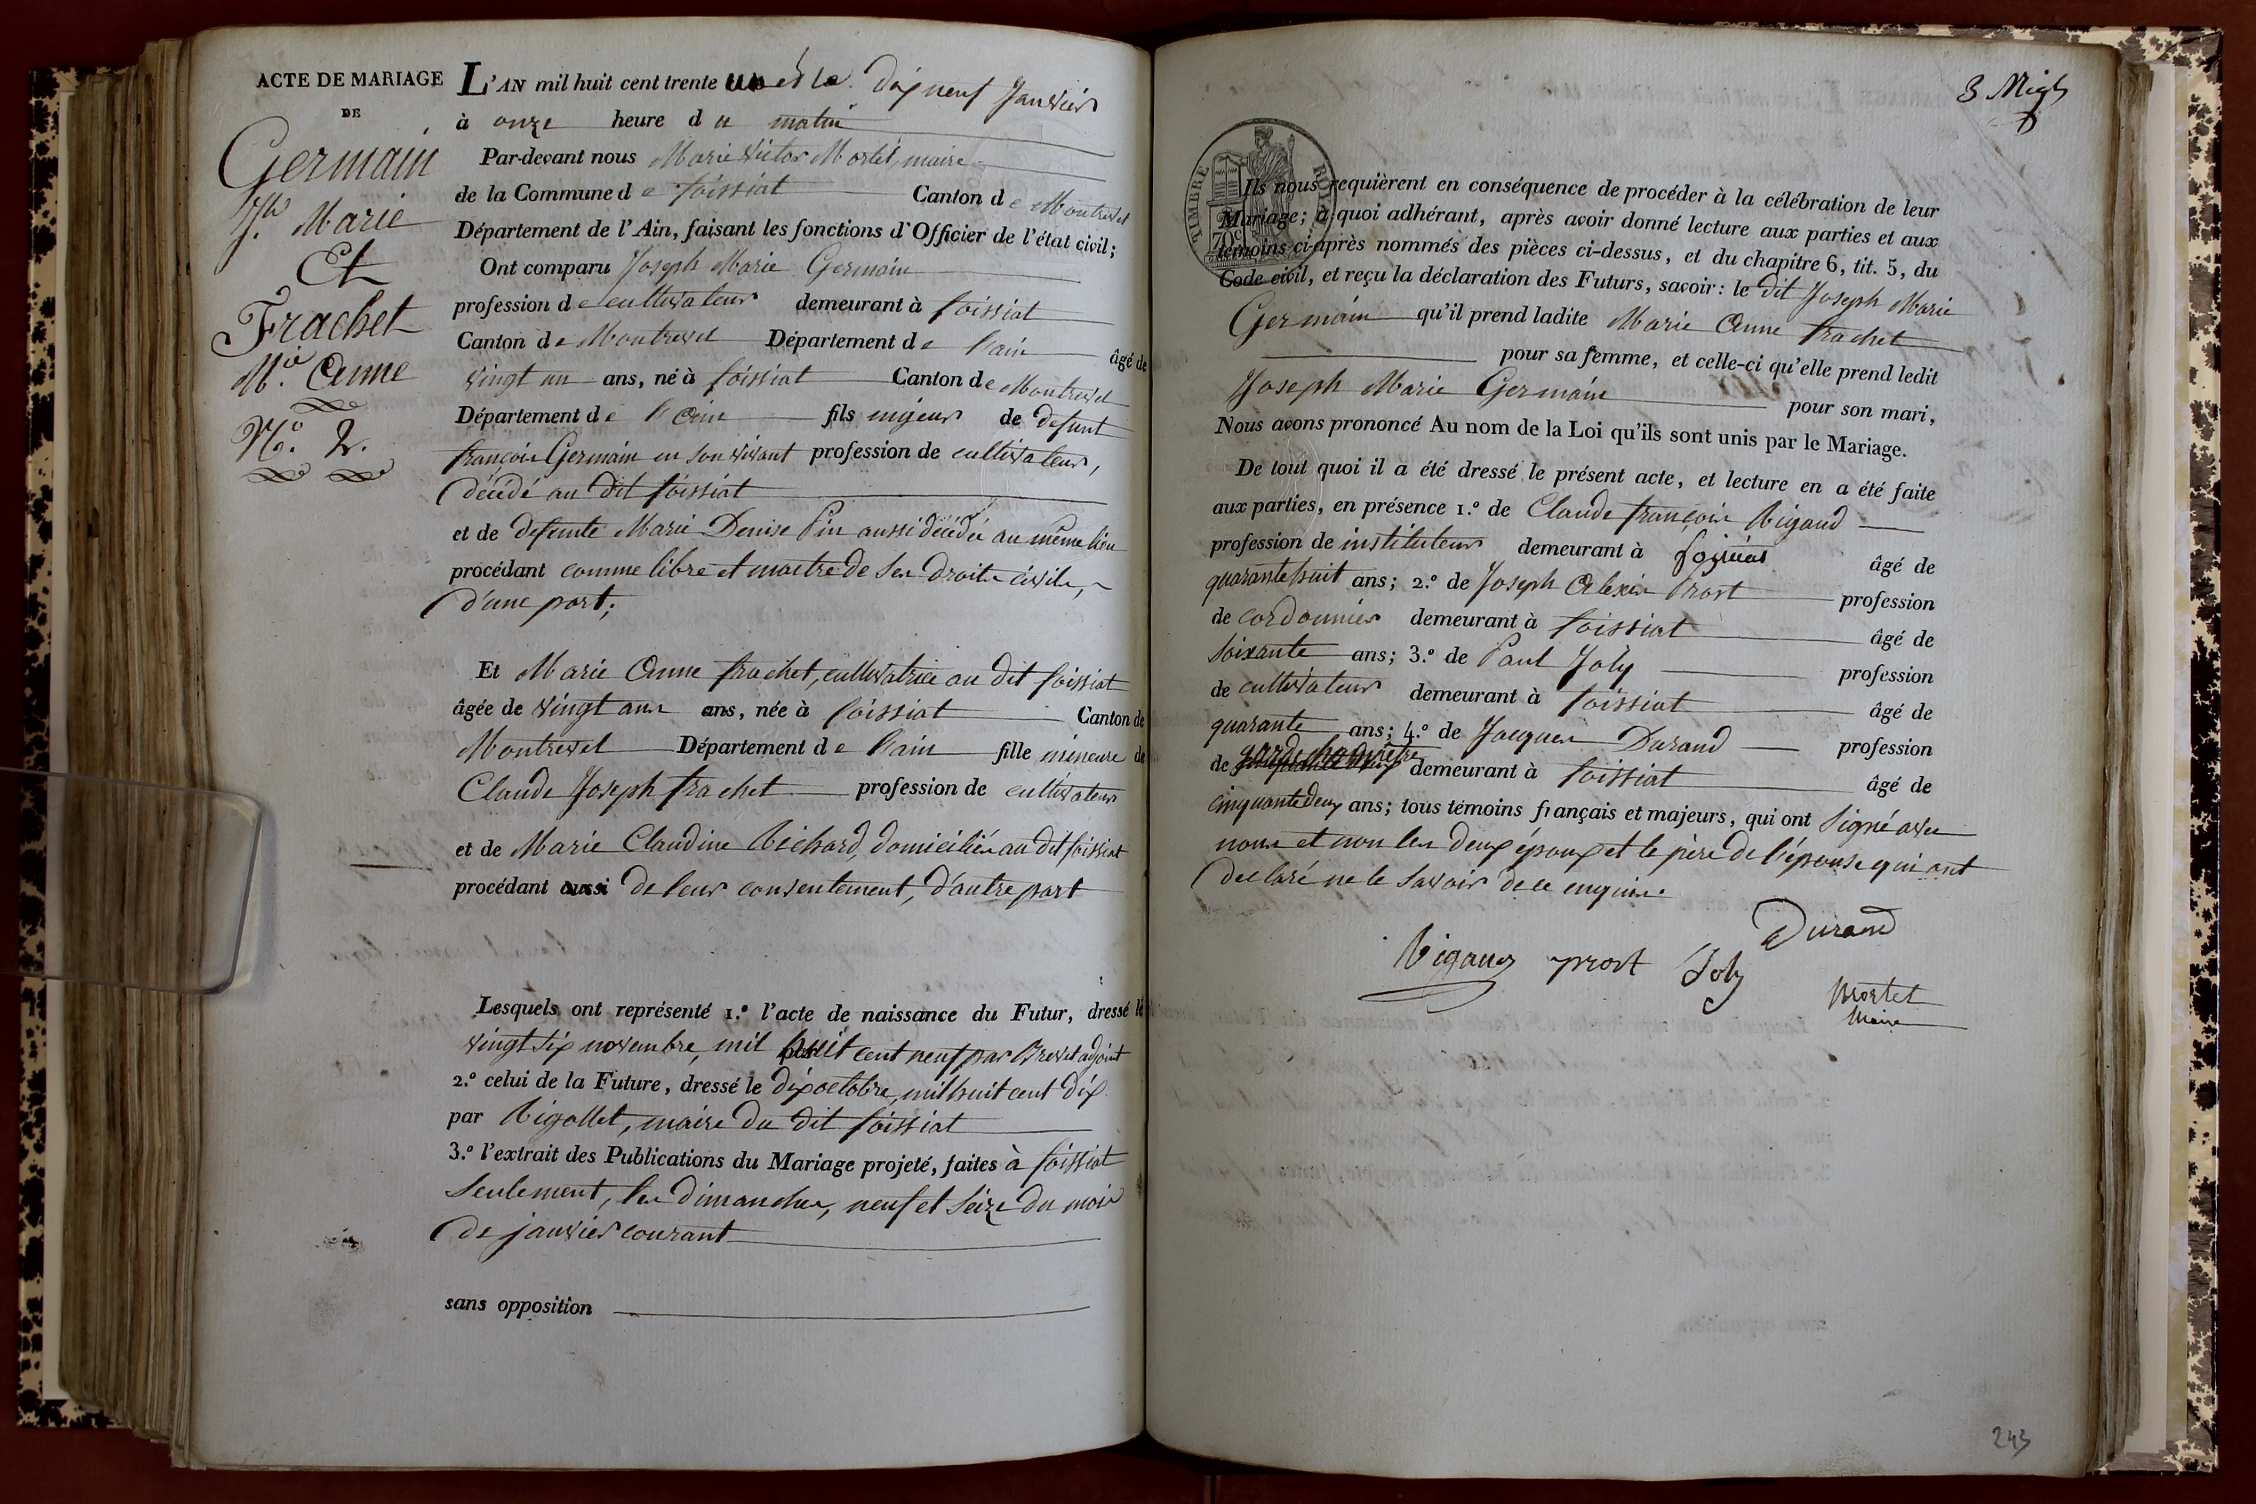 ACTE DE MARIAGE
DE
Germain
Jh. Marie
Et
Frachet
Mie. Anne
No. 2.
L'AN mil huit cent trente un et le dix neuf Janvier
à onze heure du matin
Par-devant nous Marie Victor Mortet, maire
de la Commune de foissiat Canton de Montrevel
Département de l'Ain, faisant les fonctions d'Officier de l'état civil;
Ont comparu Joseph Marie Germain
profession de cultivateur demeurant à foissiat
Canton de Montrevel Département de l'ain âgé de
vingt un ans, né à foissiat Canton de Montrevel
Département de l'ain fils majeur de defunt
françois Germain en son vivant profession de cultivateur,
décédé au dit foissiat
et de defunte Marie Denise Pin aussi décédée au même lieu
procédant comme libre et maitre de ses droits civils,
d'une part;
Et Marie Anne frachet, cultivatrice au dit foissiat
âgée de vingt ans ans, née à foissiat Canton de
Montrevel Département de l'ain fille mineure de
Claude Joseph frachet profession de cultivateur
et de Marie Claudine Richard, domiciliés au dit foissiat
procédant aussi de leur consentement, d'autre part
Lesquels ont représenté 1.º l'acte de naissance du Futur, dressé le
vingt six novembre, mil huit cent neuf par Brevet adjoint
2.º celui de la Future, dressé le dix octobre, mil huit cent dix
par Rigollet, maire du dit foissiat
3.º l'extrait des Publications du Mariage projeté, faites à foissiat
seulement, les dimanches, neuf et seize du mois
de janvier courant
sans opposition
TIMBRE ROYAL
70c
Ils nous requièrent en conséquence de procéder à la célébration de leur
Mariage; à quoi adhérant, après avoir donné lecture aux parties et aux
témoins ci-après nommés des pièces ci-dessus, et du chapitre 6, tit. 5, du
Code civil, et reçu la déclaration des Futurs, savoir: le dit Joseph Marie
Germain qu'il prend ladite Marie Anne frachet
pour sa femme, et celle-ci qu'elle prend ledit
Joseph Marie Germain pour son mari,
Nous avons prononcé Au nom de la Loi qu'ils sont unis par le Mariage.
De tout quoi il a été dressé le présent acte, et lecture en a été faite
aux parties, en présence 1.º de Claude françois Rigaud
profession de instituteur demeurant à foissiat âgé de
quarante huit ans; 2.º de Joseph Alexis Prost profession
de cordonnier demeurant à foissiat âgé de
soixante ans; 3.º de Paul Joly profession
de cultivateur demeurant à foissiat âgé de
quarante ans; 4.º de Jacques Durand profession
de garde champêtre demeurant à foissiat âgé de
cinquante deux ans; tous témoins français et majeurs, qui ont signé avec
nous et non les deux époux et le père de l'épouse qui ont
declaré ne le savoir de ce enquis.
Durand
Rigaud prost Joly
Mortet
Maire
243